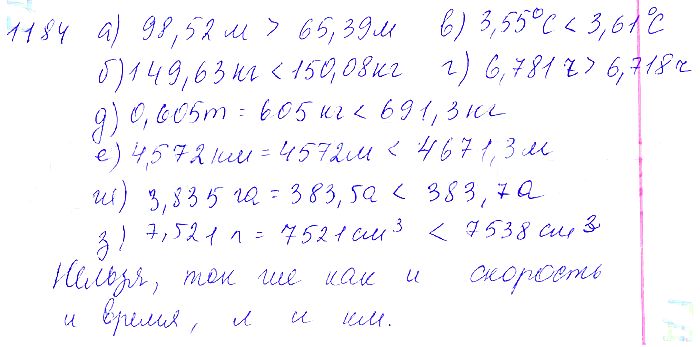 1184 а) 98,52 м > 65,39 м в) 3,55°С < 3,61°С
б) 149,63 кг < 150,08 кг г) 6,781 ч > 6,718 ч
д) 0,605 т = 605 кг < 691,3 кг
е) 4,572 км = 4572 м < 4671,3 м
ж) 3,835 га = 383,5 а < 383,7 а
з) 7,521 л = 7521 см³ < 7538 см³
Нельзя, так же как и скорость
и время, л и км.